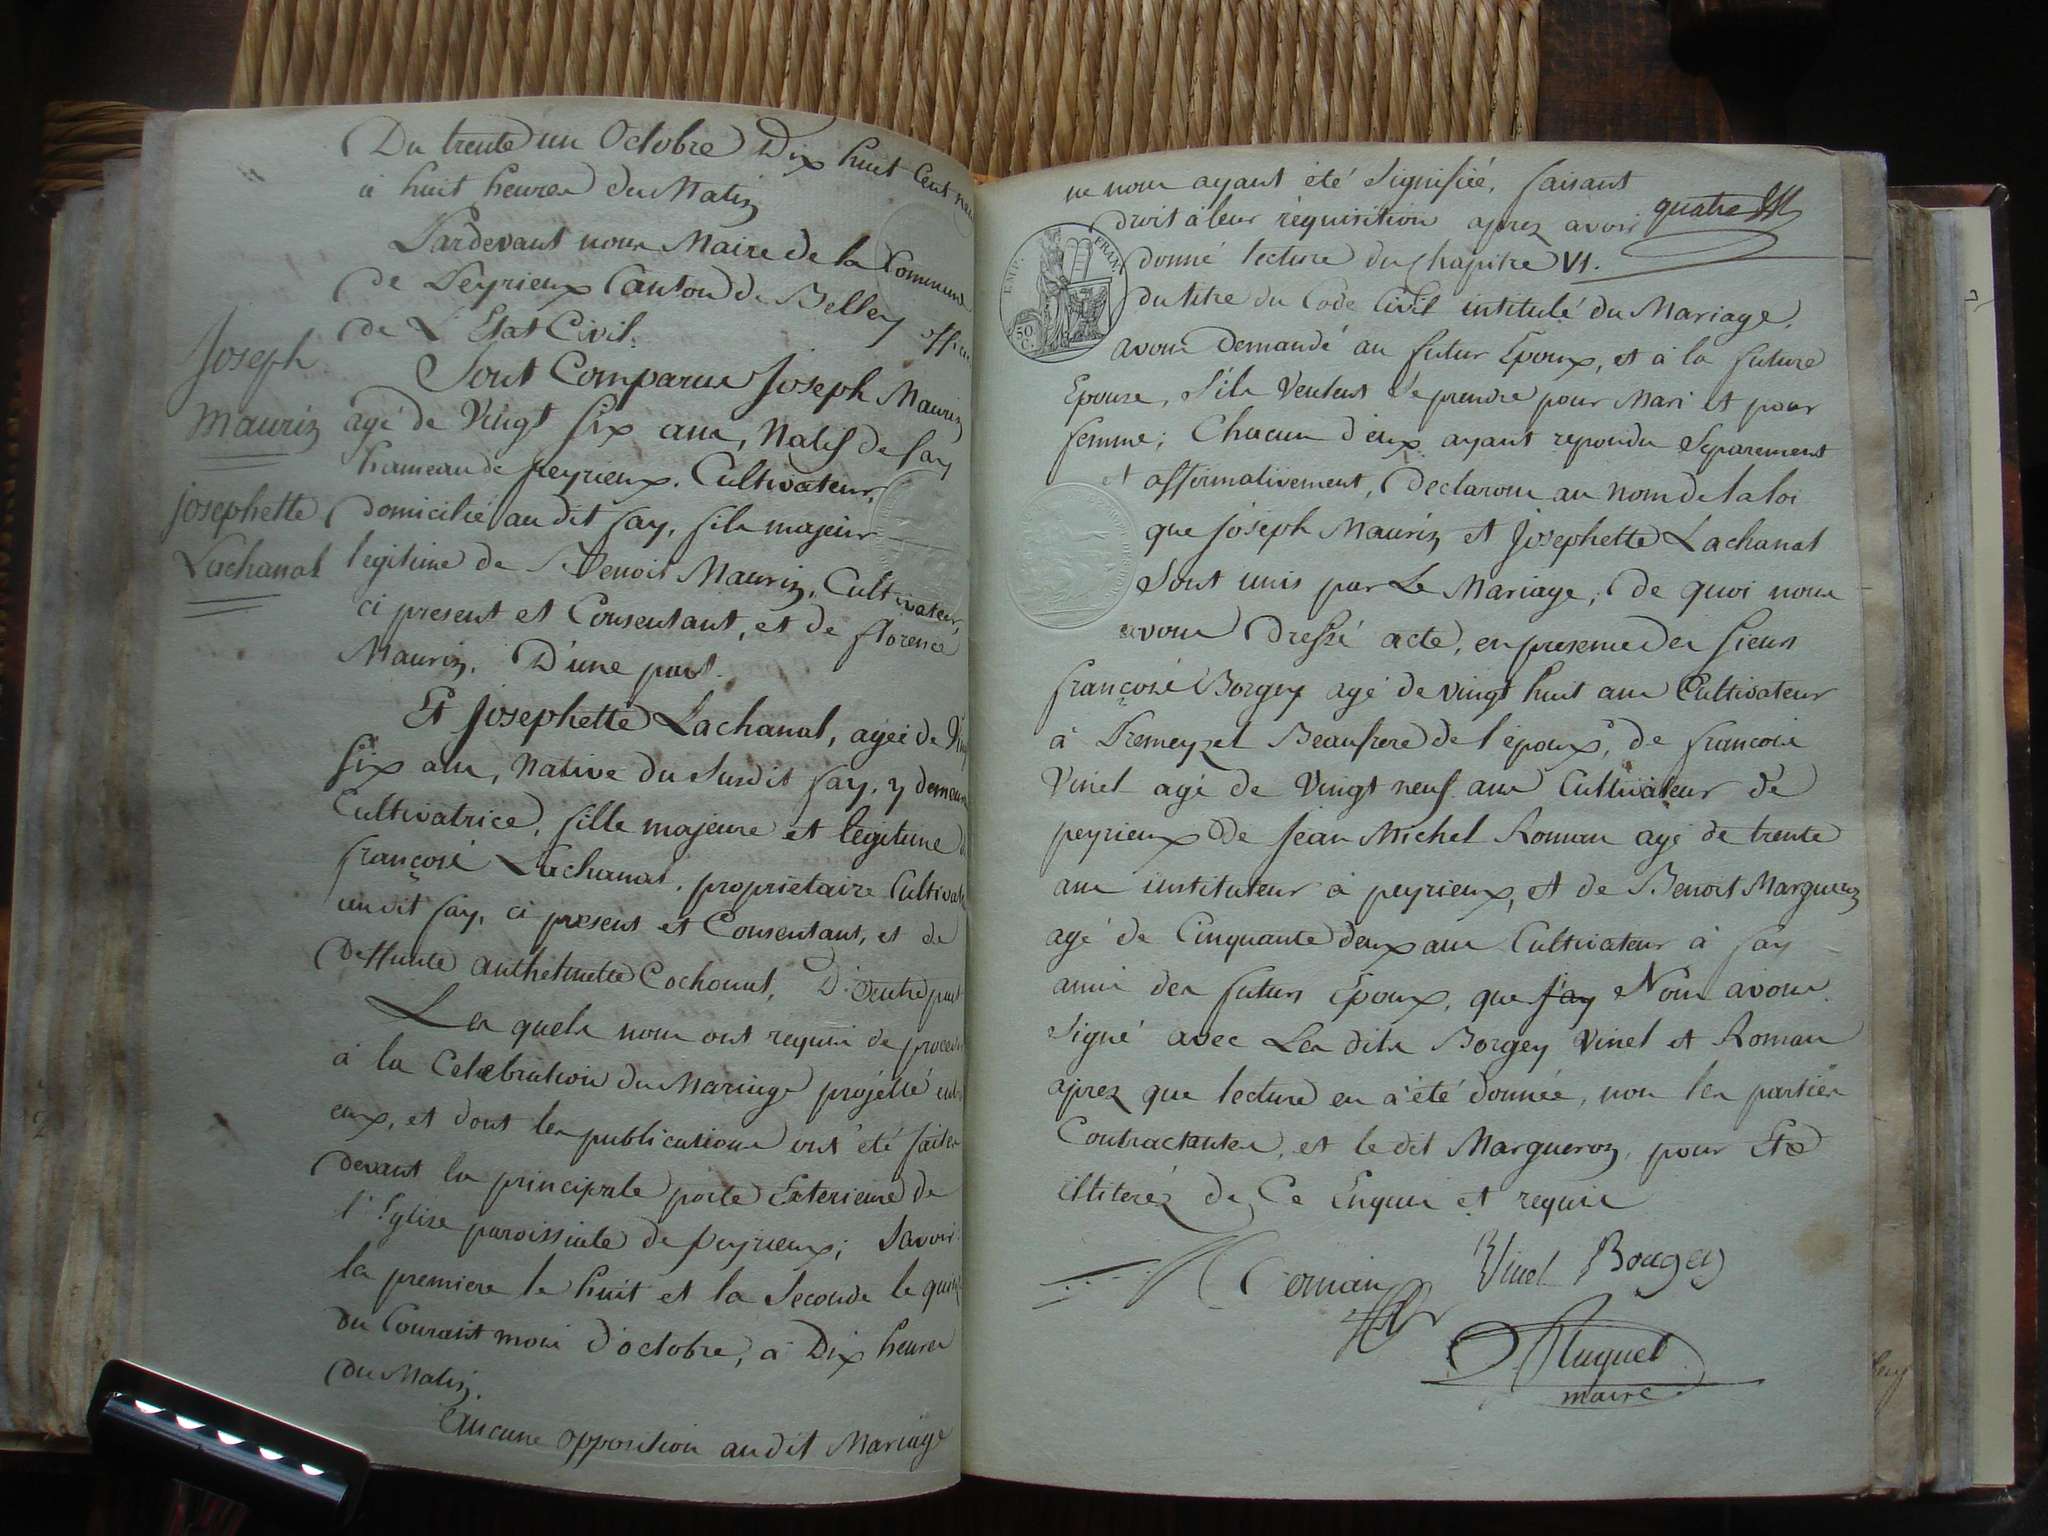 Du trente un Octobre Dix huit Cent neuf
à huit heures du Matin
Pardevant nous Maire de la Commune
de Peyrieux Canton de Belley officier
de L'Etat Civil.
Sont Comparus Joseph Maurin
agé de Vingt Six ans, Natif de fay
hameau de peyrieux. Cultivateur,
domicilié au dit fay, fils majeur
legitime de Benoit Maurin, Cultivateur,
ci present et Consentant, et de florence
Maurin, D'une part.
Et Josephette Lachanal, agée de Vingt
Six ans, Native du Susdit fay, y demeurant
Cultivatrice, fille majeure et legitime de
françois Lachanal, propriétaire Cultivateur
au dit fay, ci present et Consentant, et de
Deffunte Cochonat, D'autre part
Les quels nous ont requis de proceder
à la Celebration du Mariage projetté entre
eux, et dont les publications ont été faites
devant la principale porte Exterieure de
l'Eglise paroissiale de peyrieux; Savoir
la premiere le huit et la Seconde le quinze
du Courant mois d'octobre, à Dix heures
du Matin.
Aucune opposition au dit Mariage
Joseph
Maurin
Josephette
Lachanal
ne nous ayant été Signifiée, faisant
droit à leur réquisition aprez avoir
quatre
donné lecture du Chapitre VI.
du titre du Code Civil intitulé du Mariage.
avons Demandé au futur Epoux, et à la future
Epouse, S'ils Veulent Se prendre pour Mari et pour
femme; Chacun d'eux ayant repondu Separement
et affirmativement, Declarons au nom de la loi
que Joseph Maurin et Josephette Lachanal
Sont unis par Le Mariage; de quoi nous
avons Dressé acte, en presence des Sieurs
françois Borgey agé de vingt huit ans Cultivateur
à Premeyzel Beaufrere de l'époux, de francois
Vinet agé de Vingt neuf ans Cultivateur de
peyrieux de Jean Michel Roman agé de trente
ans instituteur à peyrieux, et de Benoit Margueron
agé de Cinquante deux ans Cultivateur à fay
amis des futurs Epoux, que j'ay Nous avons
Signé avec Les dits Borgey Vinet et Roman
aprez que lecture en a été donnée, non les parties
Contractantes, et le dit Margueron, pour Etre
illiterez de Ce Enquis et requis
Roman Vinet Bougey
maire
EMP. FRAN.
50 C.